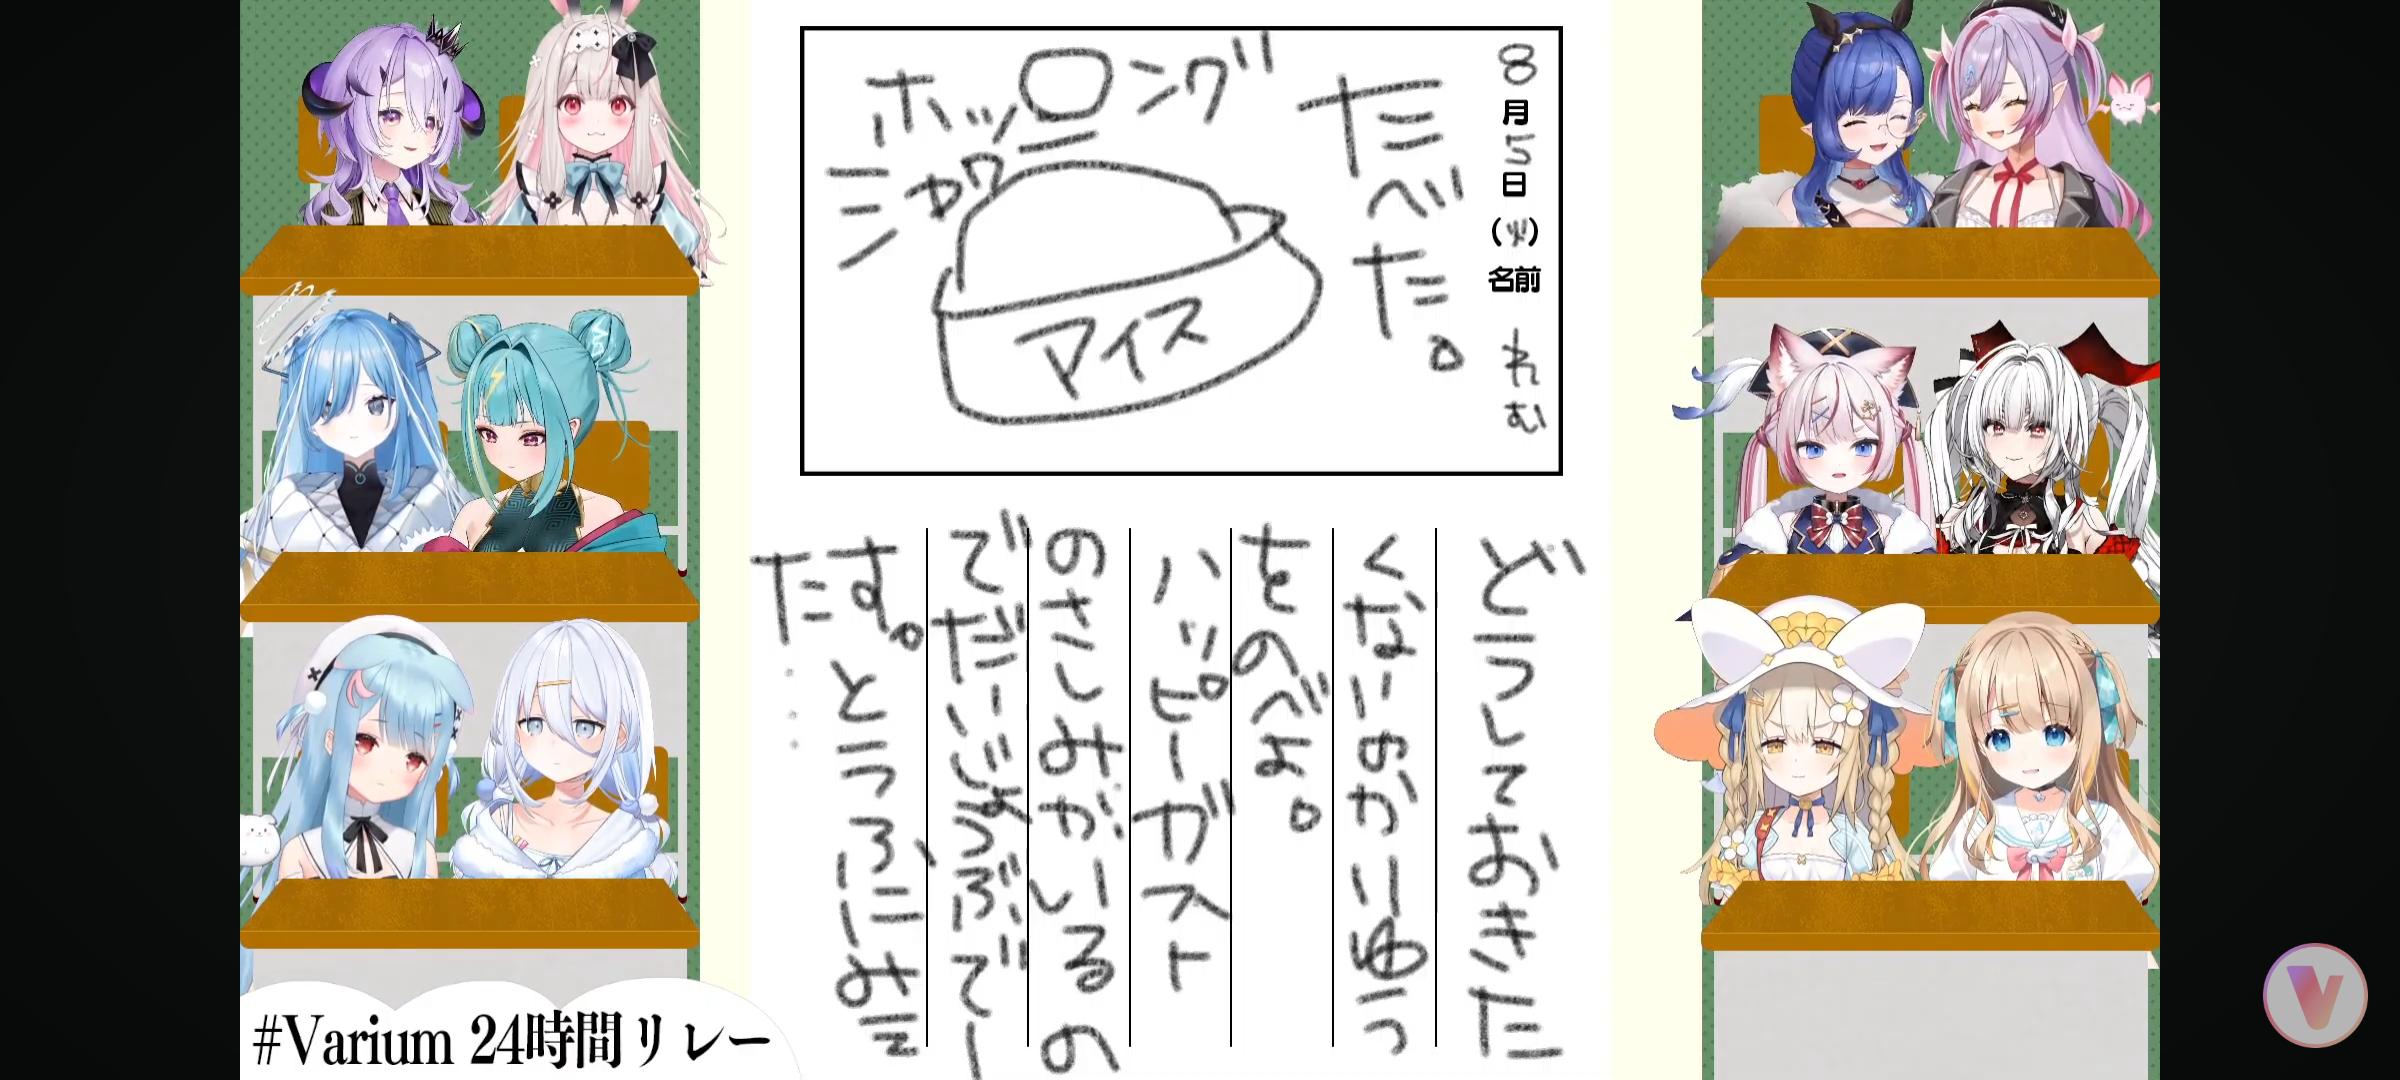 8月5日(火)名前 れむ
たべた。
ホッ
ロング
シャワ
アイス
どうしておきた
くないのかりゆう
をのべよ。
ハッピーガスト
のさしみがいるの
でだいじょうぶでー
す。とうふにみえ
た…
#Varium 24時間リレー
V